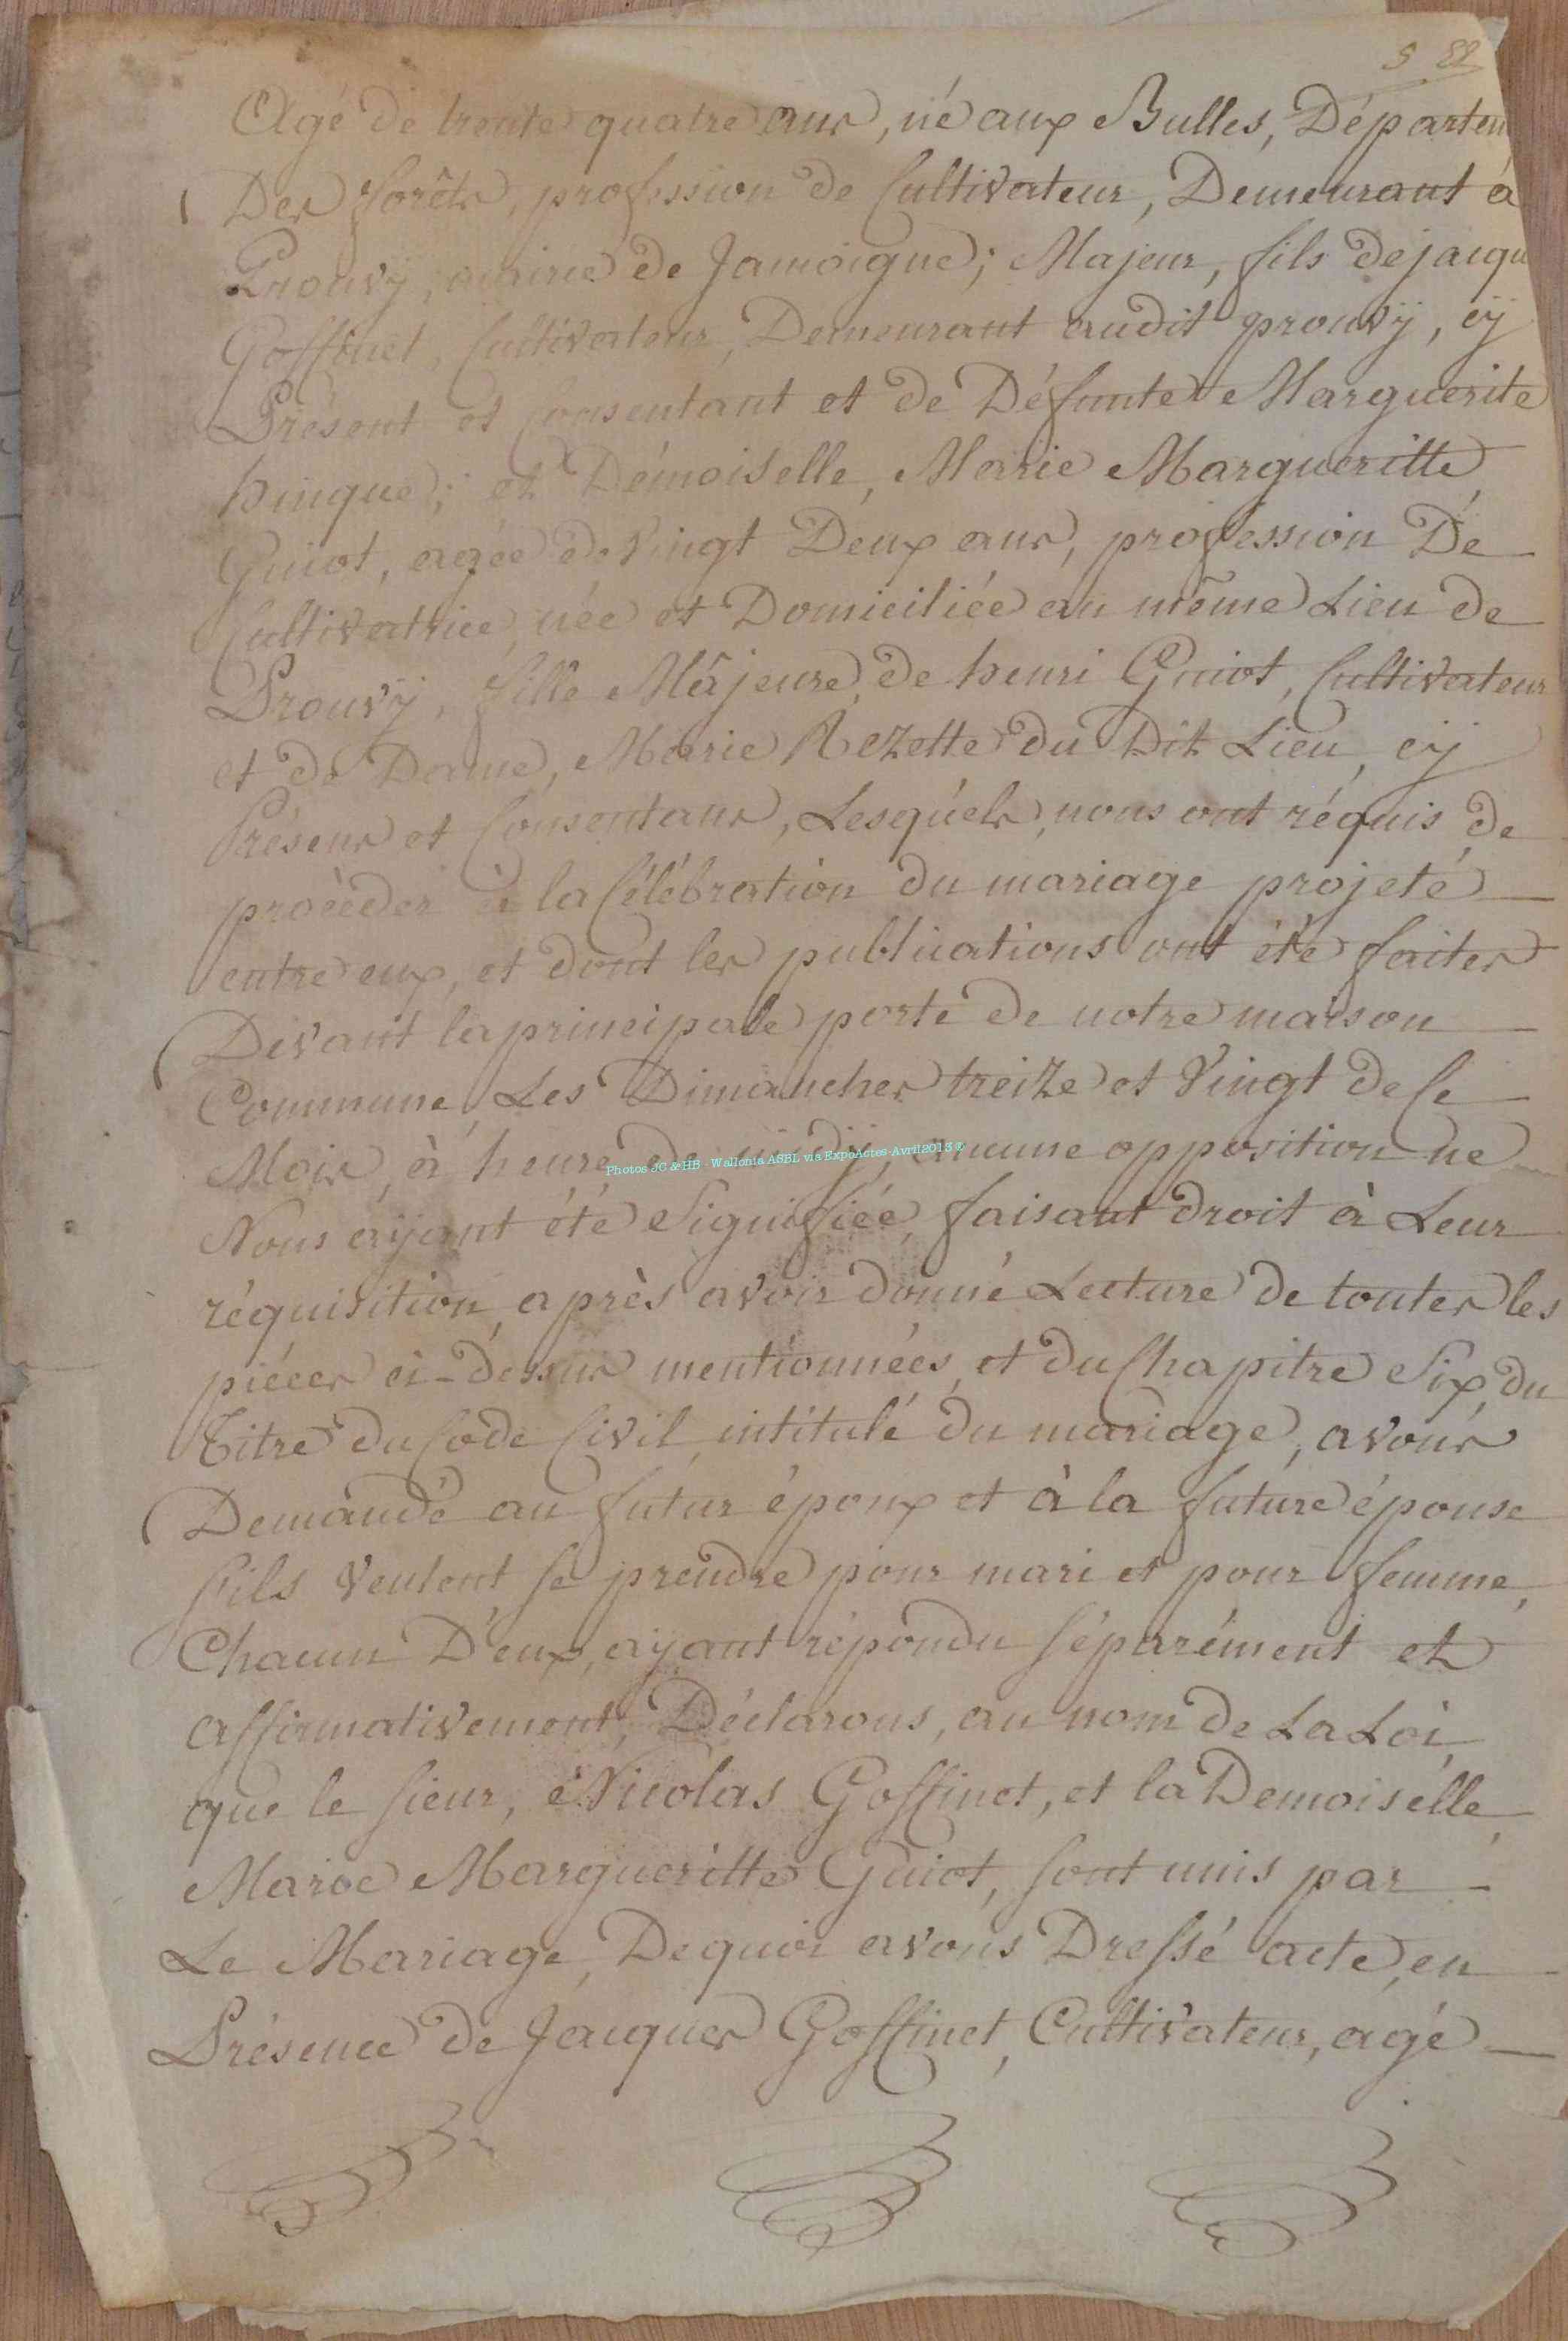 5 82
Agé de trente quatre ans, né aux Bulles, Départem
Des forêts, profession de Cultivateur, Demeurant à
Prouvÿ, mairie de Jamoigne; Majeur, fils de jacqu
Goffinet, Cultivateur, Demeurant audit prouvÿ, cÿ
Présent et Consentant et de Défunte Marguerite
hinque; et Démoiselle, Marie Margueritte
Guiot, agée de Vingt Deux ans, profession De
Cultivatrice, née et Domiciliée au même Lieu de
Prouvÿ, fille Mâjeure, de henri Guiot, Cultivateur
et de Dame, Marie Rezette du Dit Lieu, cÿ
Présens et Consentans, Lesquéls, nous ont réquis de
procèder à la Célébration du mariage projeté
entre eux, et dont les publications ont été faites
Devant la principale porte de notre maison
Commune, Les Dimanches treize et Vingt de Ce
Mois, à heure de midÿ, aucune opposition ne
Nous aÿant été Signifiée, faisant droit à Leur
réquisition, après avoir donné Lecture de toutes les
piéces ci-dessus mentionnées, et du Chapitre Six, du
Titre du Code Civil, intitulé du mariage, avons
Demandé au futur époux et à la future épouse
S'ils Veulent se prendre pour mari et pour femme,
Chacun D'eux, aÿant répondu séparément et
affirmativement, Déclarons, au nom de La Loi,
que le sieur, Nicolas Goffinet, et la Demoiselle
Marie Margueritte Guiot, sont unis par
Le Mariage, De quoi avons Dressé acte, en
Présence de Jacques Goffinet, Cultivateur, agé
Photos JC & HB - Wallonia ASBL via ExpoActes-Avril2013 ®